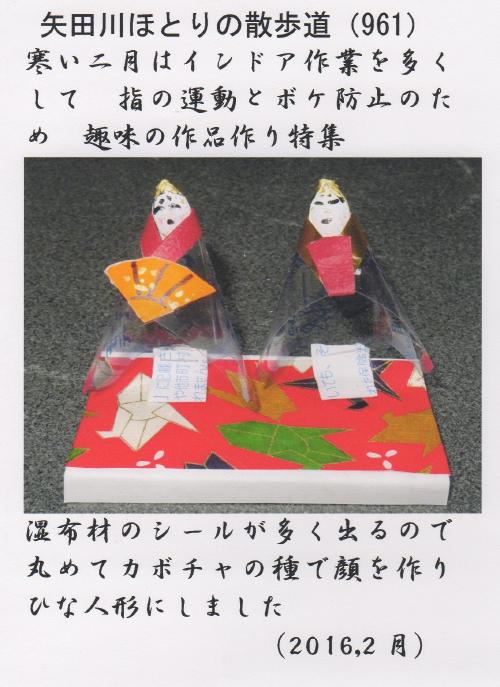 矢田川ほとりの散歩道（961）
寒い二月はインドア作業を多く
して　指の運動とボケ防止のた
め　趣味の作品作り特集
湿布材のシールが多く出るので
丸めてカボチャの種で顔を作り
ひな人形にしました
（2016,2月）